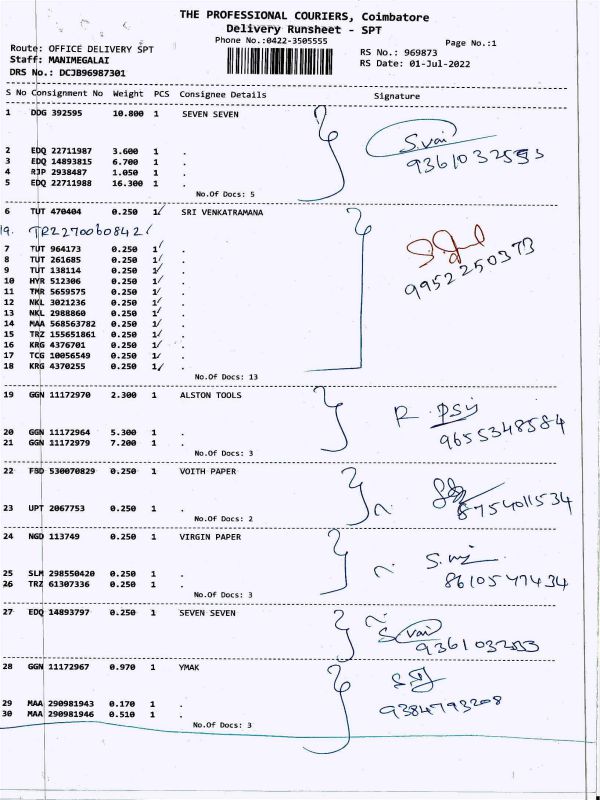 THE PROFESSIONAL COURIERS, Coimbatore
Delivery Runsheet - SPT
Phone No.:0422-3505555
Page No.:1
Route: OFFICE DELIVERY SPT
Staff: MANIMEGALAI
DRS No.: DCJB96987301
RS No.: 969873
RS Date: 01-Jul-2022
S No Consignment No Weight PCS Consignee Details Signature
1 DDG 392595 10.800 1 SEVEN SEVEN
S.vai
9361032553
2 EDQ 22711987 3.600 1 .
3 EDQ 14893815 6.700 1 .
4 RJP 2938487 1.050 1 .
5 EDQ 22711988 16.300 1 .
No.Of Docs: 5
6 TUT 470404 0.250 1 SRI VENKATRAMANA
19. TRZ2700608421
9952250373
7 TUT 964173 0.250 1 .
8 TUT 261685 0.250 1 .
9 TUT 138114 0.250 1 .
10 HYR 512306 0.250 1 .
11 TMR 5659575 0.250 1 .
12 NKL 3021236 0.250 1 .
13 NKL 2988860 0.250 1 .
14 MAA 568563782 0.250 1 .
15 TRZ 155651861 0.250 1 .
16 KRG 4376701 0.250 1 .
17 TCG 10056549 0.250 1 .
18 KRG 4370255 0.250 1 .
No.Of Docs: 13
19 GGN 11172970 2.300 1 ALSTON TOOLS
R.
9655348584
20 GGN 11172964 5.300 1 .
21 GGN 11172979 7.200 1 .
No.Of Docs: 3
22 FBD 530070829 0.250 1 VOITH PAPER
8754011534
23 UPT 2067753 0.250 1 .
No.Of Docs: 2
24 NGD 113749 0.250 1 VIRGIN PAPER
8610547434
25 SLM 298550420 0.250 1 .
26 TRZ 61307336 0.250 1 .
No.Of Docs: 3
27 EDQ 14893797 0.250 1 SEVEN SEVEN
S.vai
28 GGN 11172967 0.970 1 YMAK
9384793208
29 MAA 290981943 0.170 1 .
30 MAA 290981946 0.510 1 .
No.Of Docs: 3